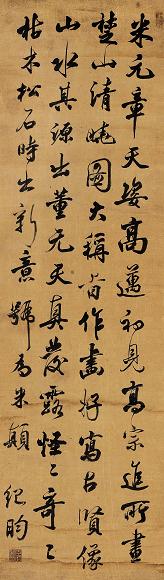 米元章天姿高邁初見高宗進所畫
楚山清曉圖大稱旨作畫好寫古賢像
山水其源出董元天真發露怪怪奇奇
枯木松石時出新意號為米顛 紀昀